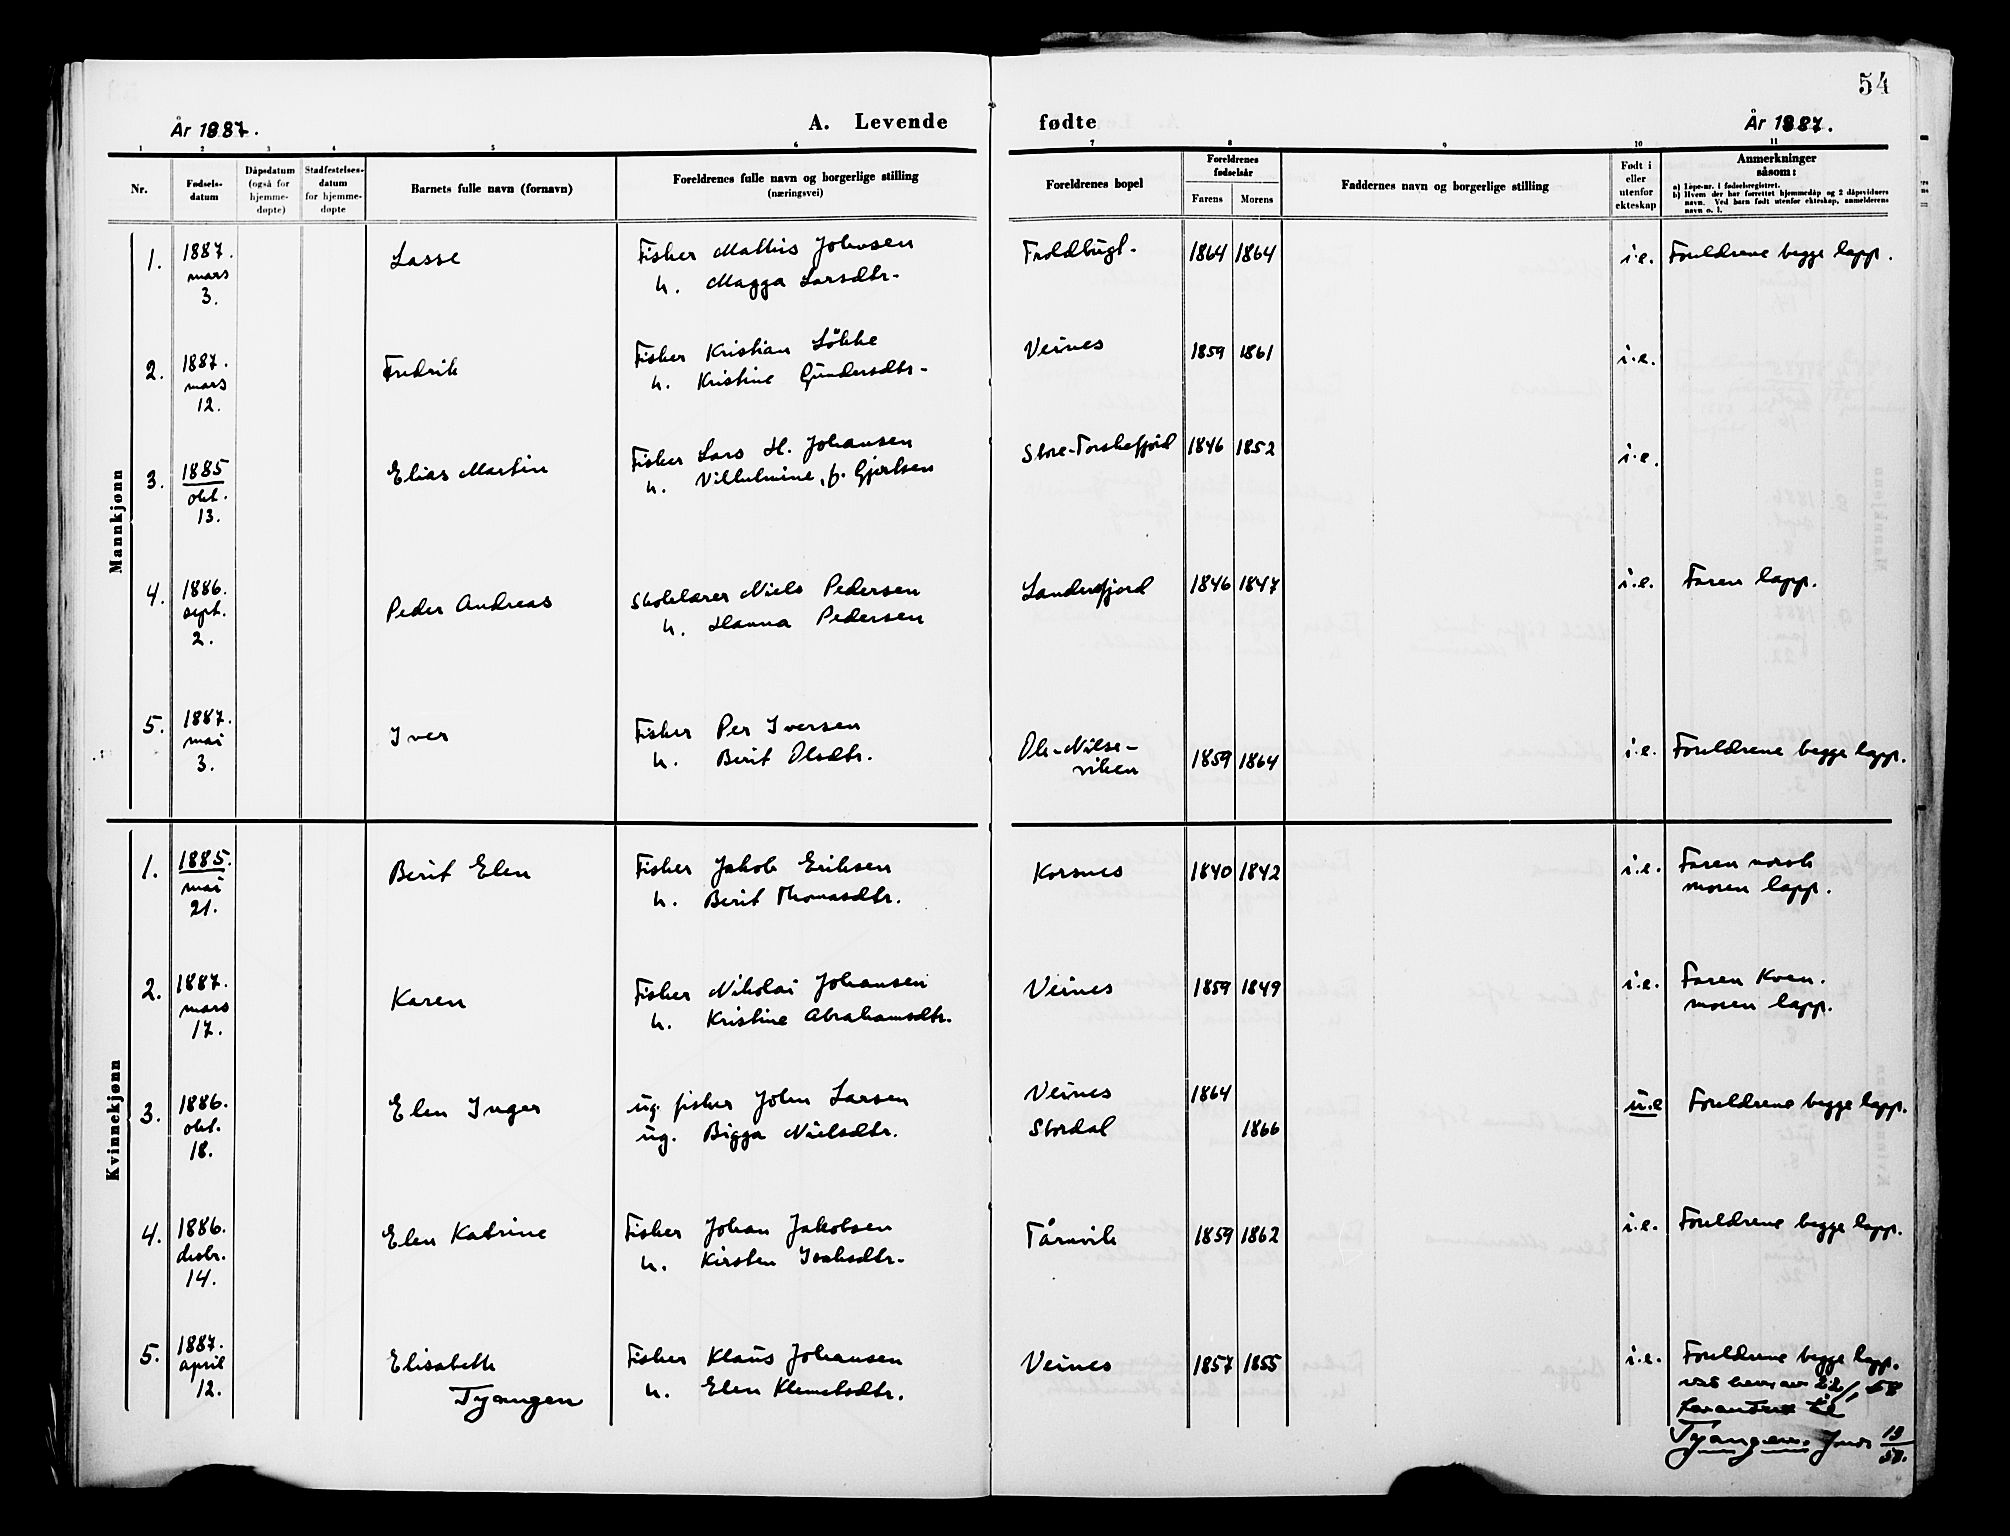 54
År 1887.
A. Levende fødte
År 1887.
1 2 3 4 5 6 7 8 9 10 11
Nr.
Fødsels-
datum
Dåpsdatum
(også for
hjemme-
døpte)
Stadfestelses-
datum
for hjemme-
døpte
Barnets fulle navn (fornavn)
Foreldrenes fulle navn og borgerlige stilling
(næringsvei)
Foreldrenes bopel
Foreldrenes
fødselsår
Farens Morens
Faddernes navn og borgerlige stilling
Født i
eller
utenfor
ekteskap
Anmerkninger
såsom:
a) Løpe-nr. i fødselsregistret.
b) Hvem der har forrettet hjemmedåp og 2 dåpsvidners
navn. Ved barn født utenfor ekteskap, anmelderens
navn o. l.
Mannkjønn
1. 1887. mars 3. Lasse Fisker Mathis Johnsen
h. Magga Larsdtr. Troldbugt. 1864 1864 i.e. Foreldrene begge lapp.
2. 1887. mars 12. Fredrik Fisker Kristian Løkke
h. Kristine Gundersdtr. Veines 1859 1861 i.e.
3. 1885 okt. 13. Elias Martin Fisker Lars H. Johansen
h. Vilhelmine, f. Gjertsen Store-Torskefjord 1846 1852 i.e.
4. 1886. sept. 2. Peder Andreas Skolelærer Niels Pedersen
h. Hanna Pedersen Landersfjord 1846 1847 i.e. Faren lapp.
5. 1887. mai 3. Iver Fisker Per Iversen
h. Berit Olsdtr. Ole-Nilse-
viken 1859 1864 i.e. Foreldrene begge lapp.
Kvinnekjønn
1. 1885. mai 21. Berit Elen Fisker Jakob Eriksen
h. Berit Thomasdtr. Korsnes 1840 1842 i.e. Faren norsk
moren lapp.
2. 1887. mars 17. Karen Fisker Nikolai Johansen
h. Kristine Abrahamsdtr. Veines 1859 1849 i.e. Faren Kven.
moren lapp.
3. 1886. okt. 18. Elen Inger ug. fisker John Larsen
ug. Bigga Nielsdtr. Veines 1864
Stordal 1866 u.e Foreldrene begge lapp.
4. 1886. desbr. 14. Elen Katrine Fisker Johan Jakobsen
h. Kirsten Isaksdtr. Tårnvik 1859 1862 i.e. Foreldrene begge lapp.
5. 1887. april 12. Elisabeth
Tyangen Fisker Klaus Johansen
h. Elen Klemetsdtr. Veines 1857 1855 i.e. Foreldrene begge lapp.
22/1 58
Tyangen. 19/58.